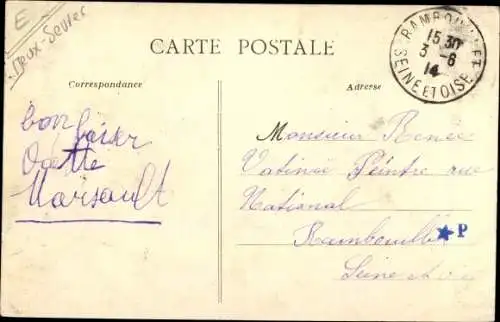 E
Deux-Sèvres
CARTE POSTALE
Correspondance
Adresse
RAMBOUILLET
15 30
3 - 6
14
SEINE ET OISE
bon
baiser
Odette
Marsault
Monsieur Renée
Vatinée Peintre rue
National
Rambouillet
Seine et Oise
★P